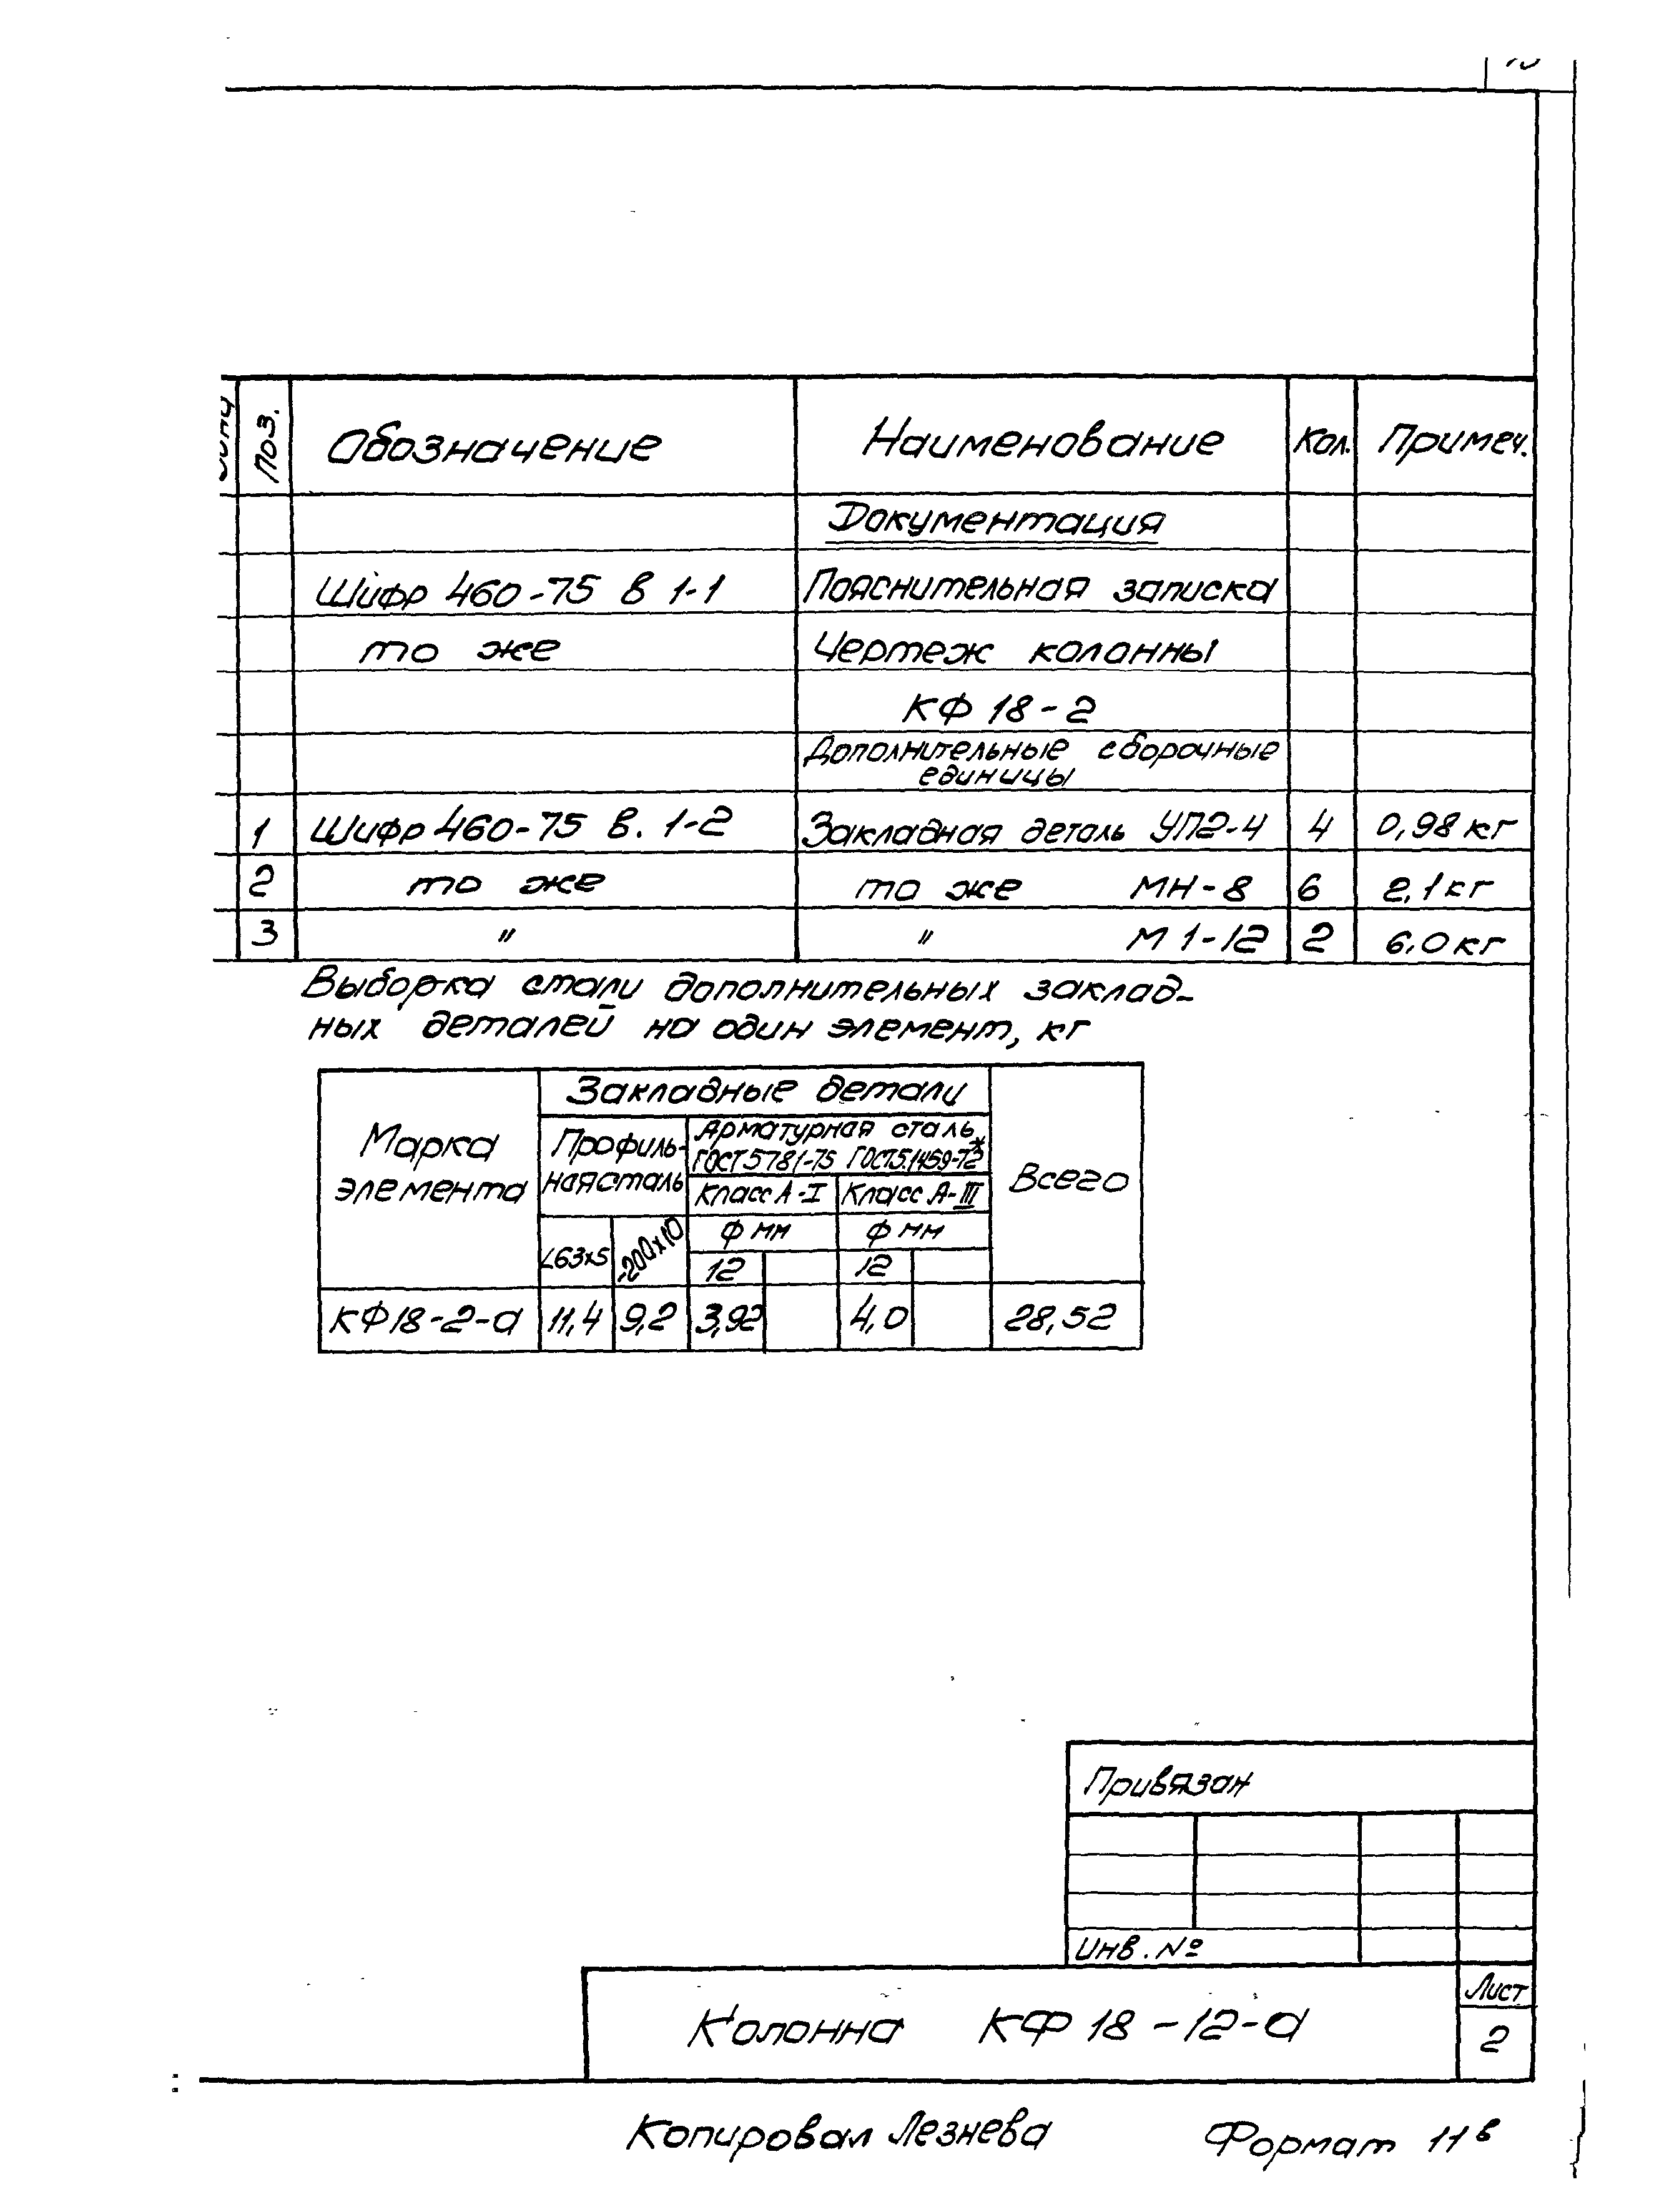 Поз. Обозначение Наименование Кол. Примеч.
Документация
Шифр 460-75 в 1-1 Пояснительная записка
то же Чертеж колонны
КФ 18-2
Дополнительные сборочные
единицы
1 Шифр 460-75 в. 1-2 Закладная деталь УП2-4 4 0,98 кг
2 то же то же МН-8 6 2,1 кг
3 " " М 1-12 2 6,0 кг
Выборка стали дополнительных заклад-
ных деталей на один элемент, кг
Марка элемента
Закладные детали
Профиль-
ная сталь
Арматурная сталь
ГОСТ 5781-75 ГОСТ 5.1459-72*
Всего
Класс А-I Класс А-III
Ф мм Ф мм
L63x5 -200x10 12 12
КФ18-2-а 11,4 9,2 3,92 4,0 28,52
Привязан
Инв. №
Колонна КФ 18-12-а
Лист
2
Копировал Лезнева Формат 11в